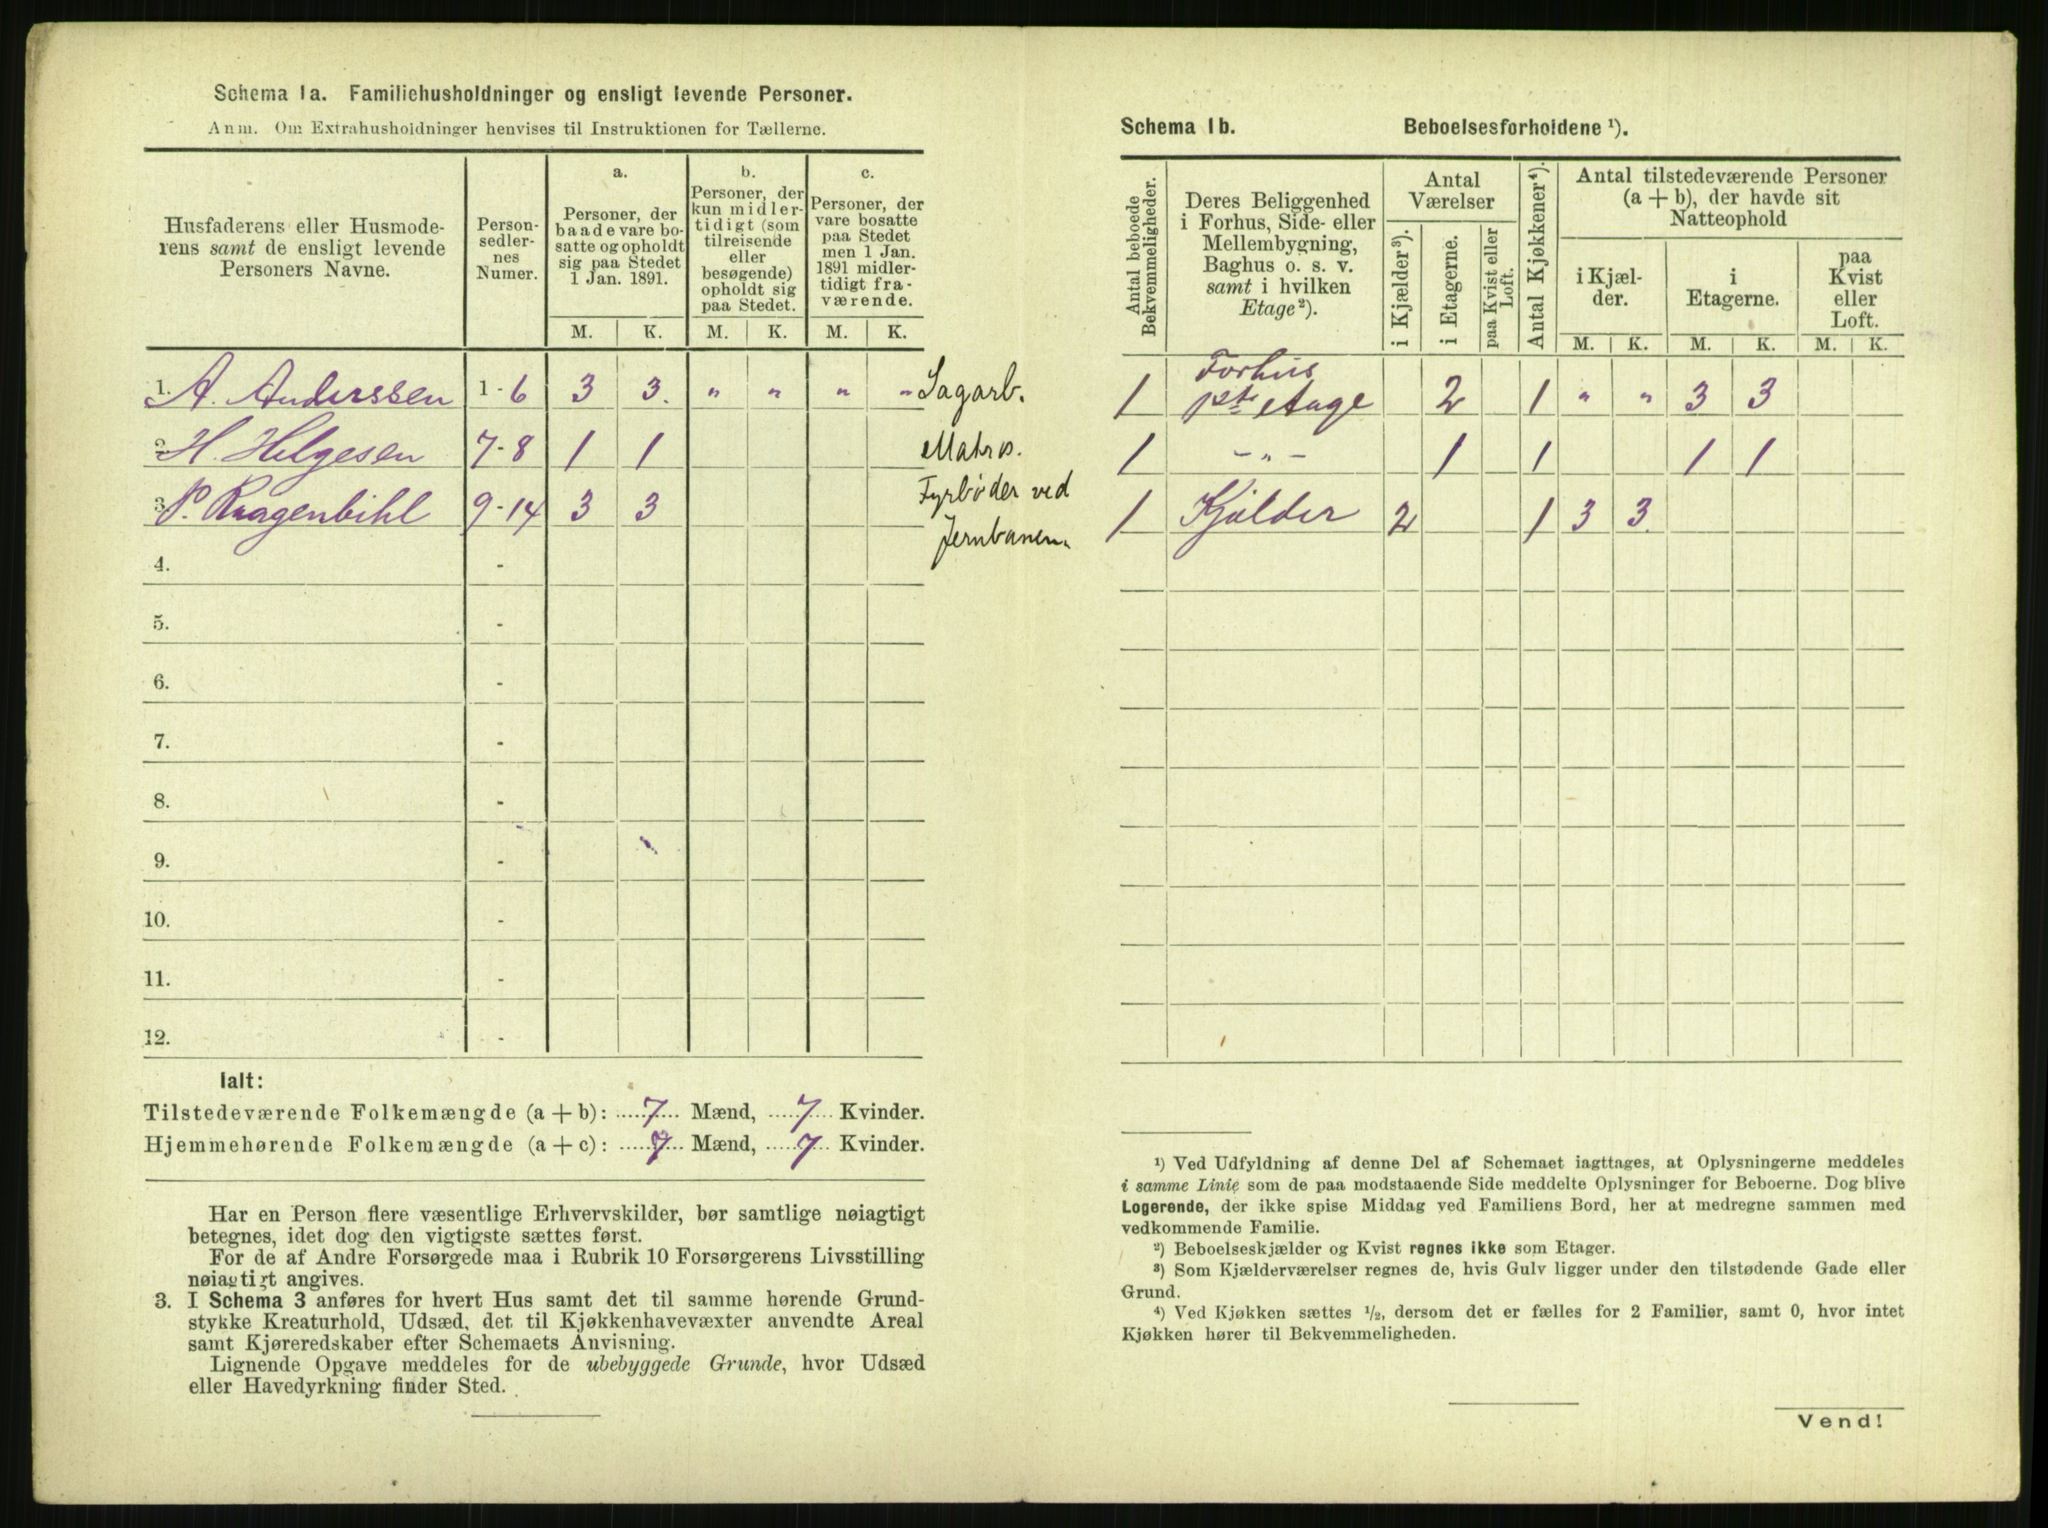 Schema 1a. Familiehusholdninger og ensligt levende Personer.
Anm. Om Extrahusholdninger henvises til Instruktionen for Tællerne.
Husfaderens eller Husmode-
rens samt de ensligt levende
Personers Navne.
Person-
sedler-
nes
Numer.
a.
Personer, der
baade vare bo-
satte og opholdt
sig paa Stedet
1 Jan. 1891.
b.
Personer, der
kun midler-
tidigt (som
tilreisende
eller
besøgende)
opholdt sig
paa Stedet.
c.
Personer, der
vare bosatte
paa Stedet
men 1 Jan.
1891 midler-
tidigt fra-
værende.
M. K. M. K. M. K.
1. A. Anderssen 1-6 3 3. " " " " Sagarb.
2. H. Helgesen 7-8 1 1 Matros.
3. P. Kragenbihl 9-14 3 3 Fyrbøder ved
Jernbanen.
4. -
5. -
6. -
7. -
8. -
9. -
10. -
11. -
12. -
Ialt:
Tilstedeværende Folkemængde (a + b): 7 Mænd, 7 Kvinder.
Hjemmehørende Folkemængde (a + c): 7 Mænd, 7 Kvinder.
Har en Person flere væsentlige Erhvervskilder, bør samtlige nøiagtigt
betegnes, idet dog den vigtigste sættes først.
For de af Andre Forsørgede maa i Rubrik 10 Forsørgerens Livsstilling
nøiagtigt angives.
3. I Schema 3 anføres for hvert Hus samt det til samme hørende Grund-
stykke Kreaturhold, Udsæd, det til Kjøkkenhavevæxter anvendte Areal
samt Kjøreredskaber efter Schemaets Anvisning.
Lignende Opgave meddeles for de ubebyggede Grunde, hvor Udsæd
eller Havedyrkning finder Sted.
Schema 1b. Beboelsesforholdene ¹).
Antal beboede
Bekvemmeligheder.
Deres Beliggenhed
i Forhus, Side- eller
Mellembygning,
Baghus o. s. v.
samt i hvilken
Etage ²).
Antal
Værelser
i Kjælder ³).
i Etagerne.
paa Kvist eller
Loft.
Antal Kjøkkener ⁴).
Antal tilstedeværende Personer
(a + b), der havde sit
Natteophold
i Kjæl-
der.
i
Etagerne.
paa
Kvist
eller
Loft.
M. K. M. K. M. K.
Forhus
1 1ste Etage 2 1 " " 3 3
1 - " - 1 1 1 1
1 Kjælder 2 1 3 3.
¹) Ved Udfyldning af denne Del af Schemaet iagttages, at Oplysningerne meddeles
i samme Linie som de paa modstaaende Side meddelte Oplysninger for Beboerne. Dog blive
Logerende, der ikke spise Middag ved Familiens Bord, her at medregne sammen med
vedkommende Familie.
²) Beboelseskjælder og Kvist regnes ikke som Etager.
³) Som Kjælderværelser regnes de, hvis Gulv ligger under den tilstødende Gade eller
Grund.
⁴) Ved Kjøkken sættes ½, dersom det er fælles for 2 Familier, samt 0, hvor intet
Kjøkken hører til Bekvemmeligheden.
Vend!